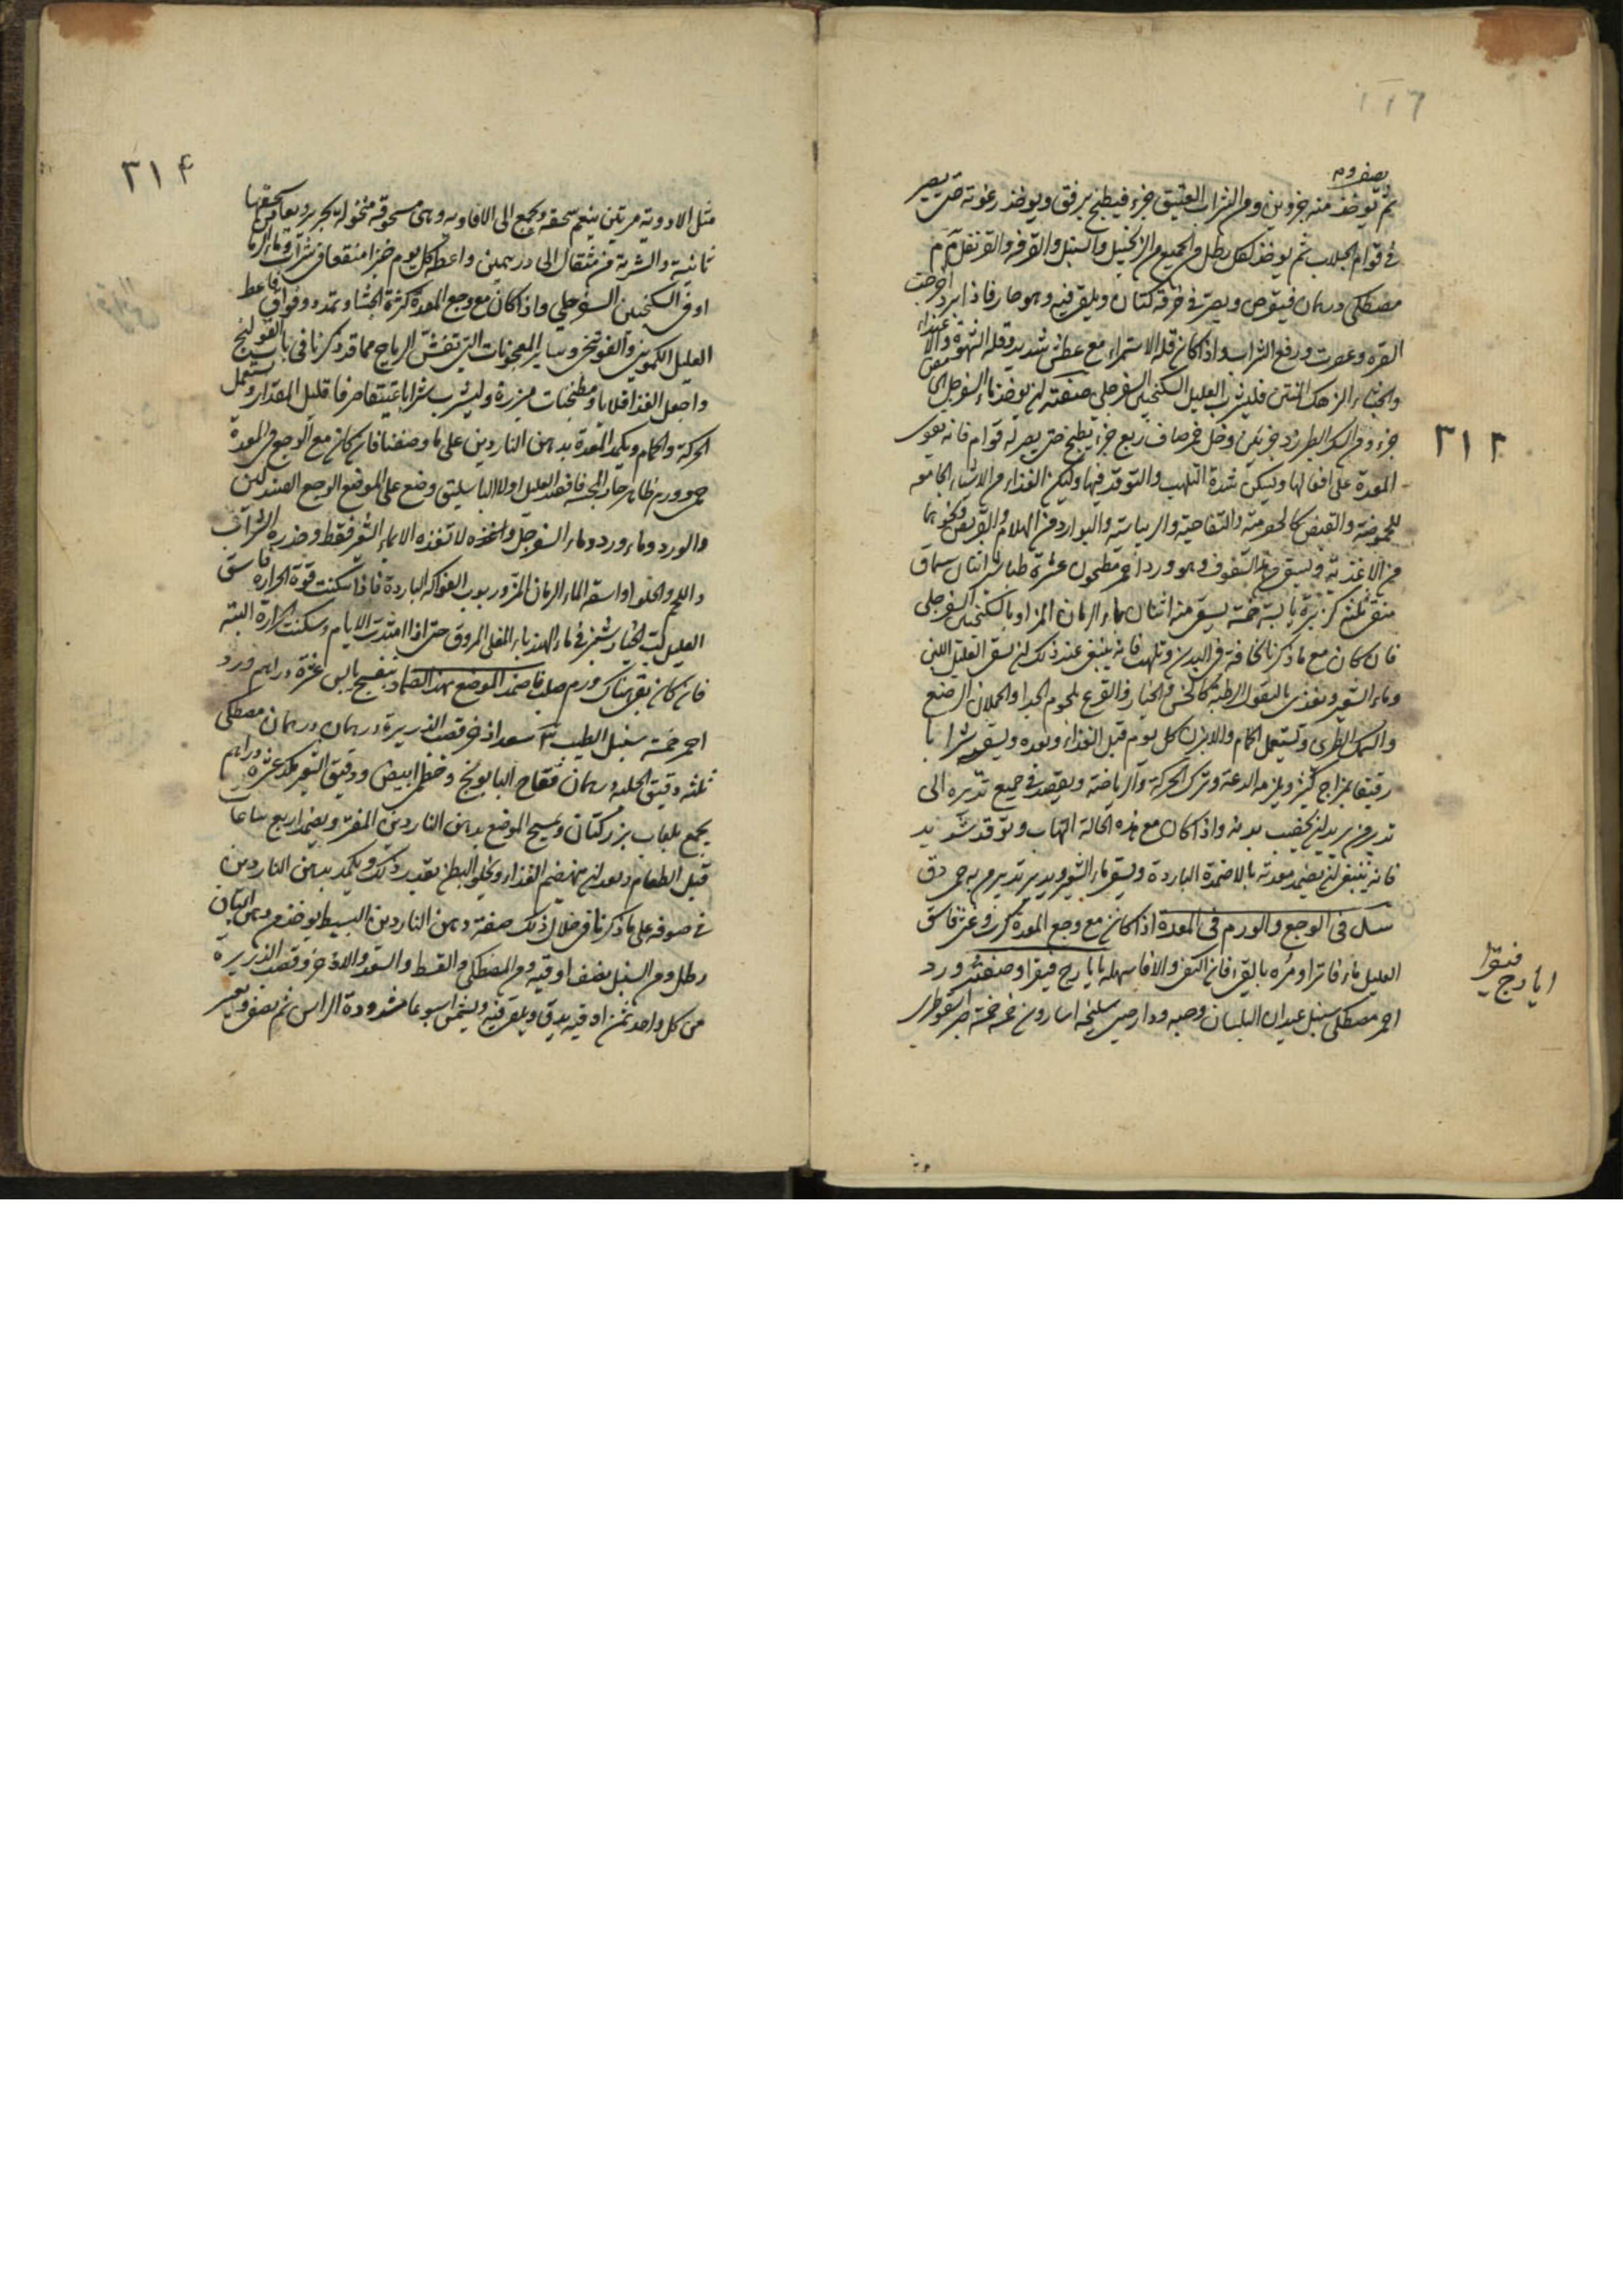 ثم يوخذ منه جزوين ومن الشراب العتيق جزء فيطبخ برفق ويوخذ رغوته حتى يصير
فى قوام الجلاب ثم يوخذ لكل رطل من الجميع من الزنجبيل والسنبل والقرفه والقرنفل
مصطكى درهمان فيرض ويصر فى خرقة كتان ويلقى فيه وهو حار فاذا برد اخرجت
وعصرت ورفع الشراب واذا كان قلة الاستمراء مع عطش شديد وقلة الشهوة
والجشاء المنتن فليشرب العليل السكنجبين السفرجلى صفته ان يوخذ ماء السفرجل
جزء ومن السكر الطبرزد جزئين وخل خمر صاف ربع جزء يطبخ حتى يصير له قوام فانه يقوى
المعدة على افعالها ويسكن شدة التلهب والتوقد فيها وليكن الغذاء من الاشياء الجامعه
للحموضة والقبض كالحصرمية والتفاحية والريباسية والبوارد من الهلام والقريص ونحوهما
من الاغذية ويسقى من هذا السفوف وهو ورد احمر مطحون عشرة طباشير اثنان سماق
منقى ثلثة كزبرة يابسة خمسة يسقى منه اثنان بماء الرمان المز او بالسكنجبين السفرجلى
فان كان مع ما ذكرنا نحافة فى البدن وتلهب فانه ينبغى عند ذلك ان يسقى العليل اللبن
وماء الشعير ويغذى بالبقول الرطبة كالخس والخيار والقرع بلحوم الجدا والحملان الرضع
والسمك الطرى ويستعمل الحمام والابزن كل يوم قبل الغذاء وبعده ويسقيه شرابا
رقيقا بمزاج كثير ويلزمه الدعة وترك الحركة والرياضة ويقصد فى جميع تدبيره الى
تدبير من يريد ان يخصب بدنه واذا كان مع هذه الحالة التهاب وتوقد شديد
فانه ينبغى ان يضمد معدته بالاضمدة الباردة ويسقى ماء الشعير ويدبر تدبير من به حمى دق
فى الوجع والورم فى المعدة اذا كان مع وجع المعدة كرب وغثى فاسق
العليل ماء فاترا ومره بالقئ فان اكتفى والا فاسهله بايارج فيقرا وصفته ورد
احمر مصطكى سنبل عيدان البلسان وحبه ودارصينى سليخه اسارون خمسه خمسه صبر اسقوطرى
٣١٢
ايارج فيقرا
٣١٤
مثل الادوية مرتين ينعم سحقه ويجمع الى الافاويه وهى مسحوقه منخوله بحرير ويعاد سحقها
ثانية والشربة من مثقال الى درهمين واعطه كل يوم خبزا منقعا فى شراب
او فى السكنجبين السفرجلى واذا كان مع وجع المعدة كثرة الجشاء وتمدد وفواق فاعط
العليل الكمونى والفوتنجى وسائر المعجونات التى تفش الرياح مما قد ذكرنا فى باب القولنج
واجعل الغذا قلايا ومطجنات مبزرة وليشرب شرابا عتيقا صرفا قليل المقدار ويستعمل
الحركة والحمام ويكمد المعدة بدهن الناردين على ما وصفنا فان كان مع الوجع فى المعدة
حمى وورم ظاهر حار المجسه فافصد العليل اولا الباسليق وضع على الموضع الوجع الصندلين
والورد وماء ورد وماء السفرجل ولا تغذه الا بماء الشعير فقط وحذره الشراب
واللحم والحلواء واسقه الماء الرمان المز وربوب الفواكه الباردة فاذا سكنت قوة الحرارة فاسق
العليل لب الخيارشنبر فى ماء الهندباء المغلى المروق حتى اذا امتدت الايام وسكنت الحرارة البتة
فان كان بقى هناك ورم صلب فاضمد الموضع بهذا الضماد بنفسج يابس عشرة دراهم ورد
احمر خمسة سنبل الطيب سعد اذخر قصب الذريرة درهمان درهمان مصطكى
ثلثه دقيق الحلبه درهمان فقاح البابونج وخطمى ابيض ودقيق الشعير عشرة دراهم
يجمع بلعاب بزر كتان ويمسح الموضع بدهن الناردين المفتر ويضمد اربع ساعات
قبل الطعام وبعد ان ينهضم الغذاء ويخلو البطن بقدر ذلك ويكمد بدهن الناردين
فى صوفه على ما ذكرنا فى خلال ذلك صفة دهن الناردين البسيط يوخذ من دهن البان
رطل ومن السنبل نصف اوقيه ومن المصطكى والقسط والسعد والاذخر وقصب الذريرة
من كل واحد ثمن اوقيه يدق ويلقى فيه ويشمس اسبوعا مشدودة الراس ثم يصفى ويعصر